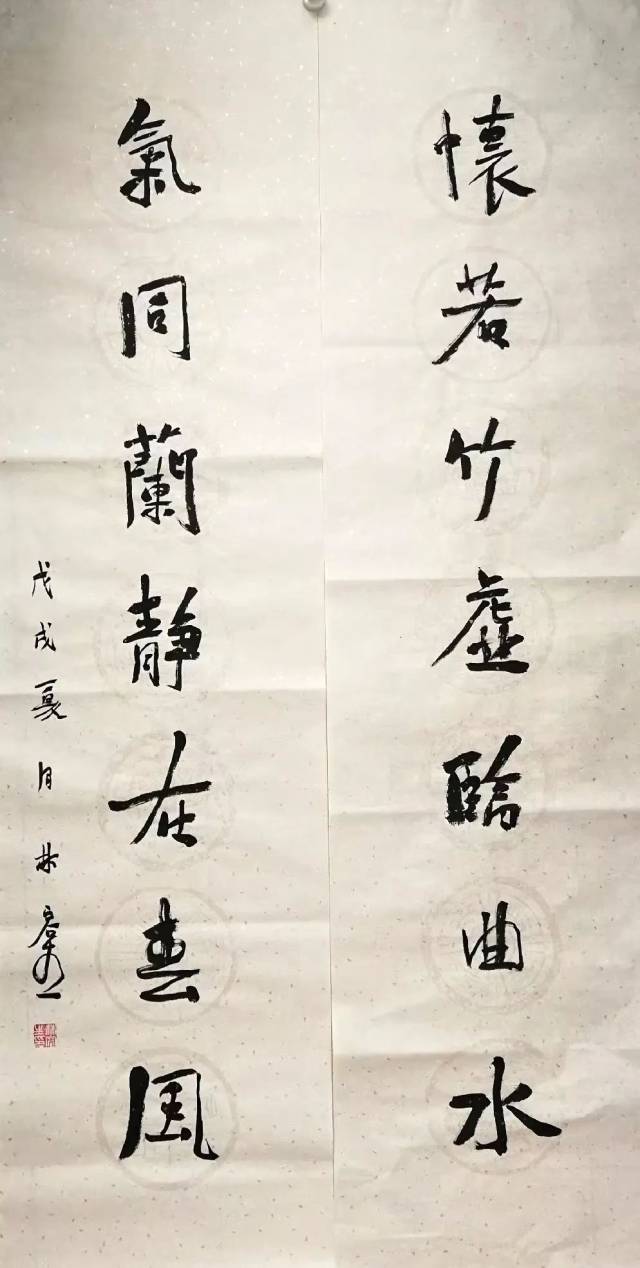 懷若竹虛臨曲水
氣同蘭靜在春風
戊戌夏月林